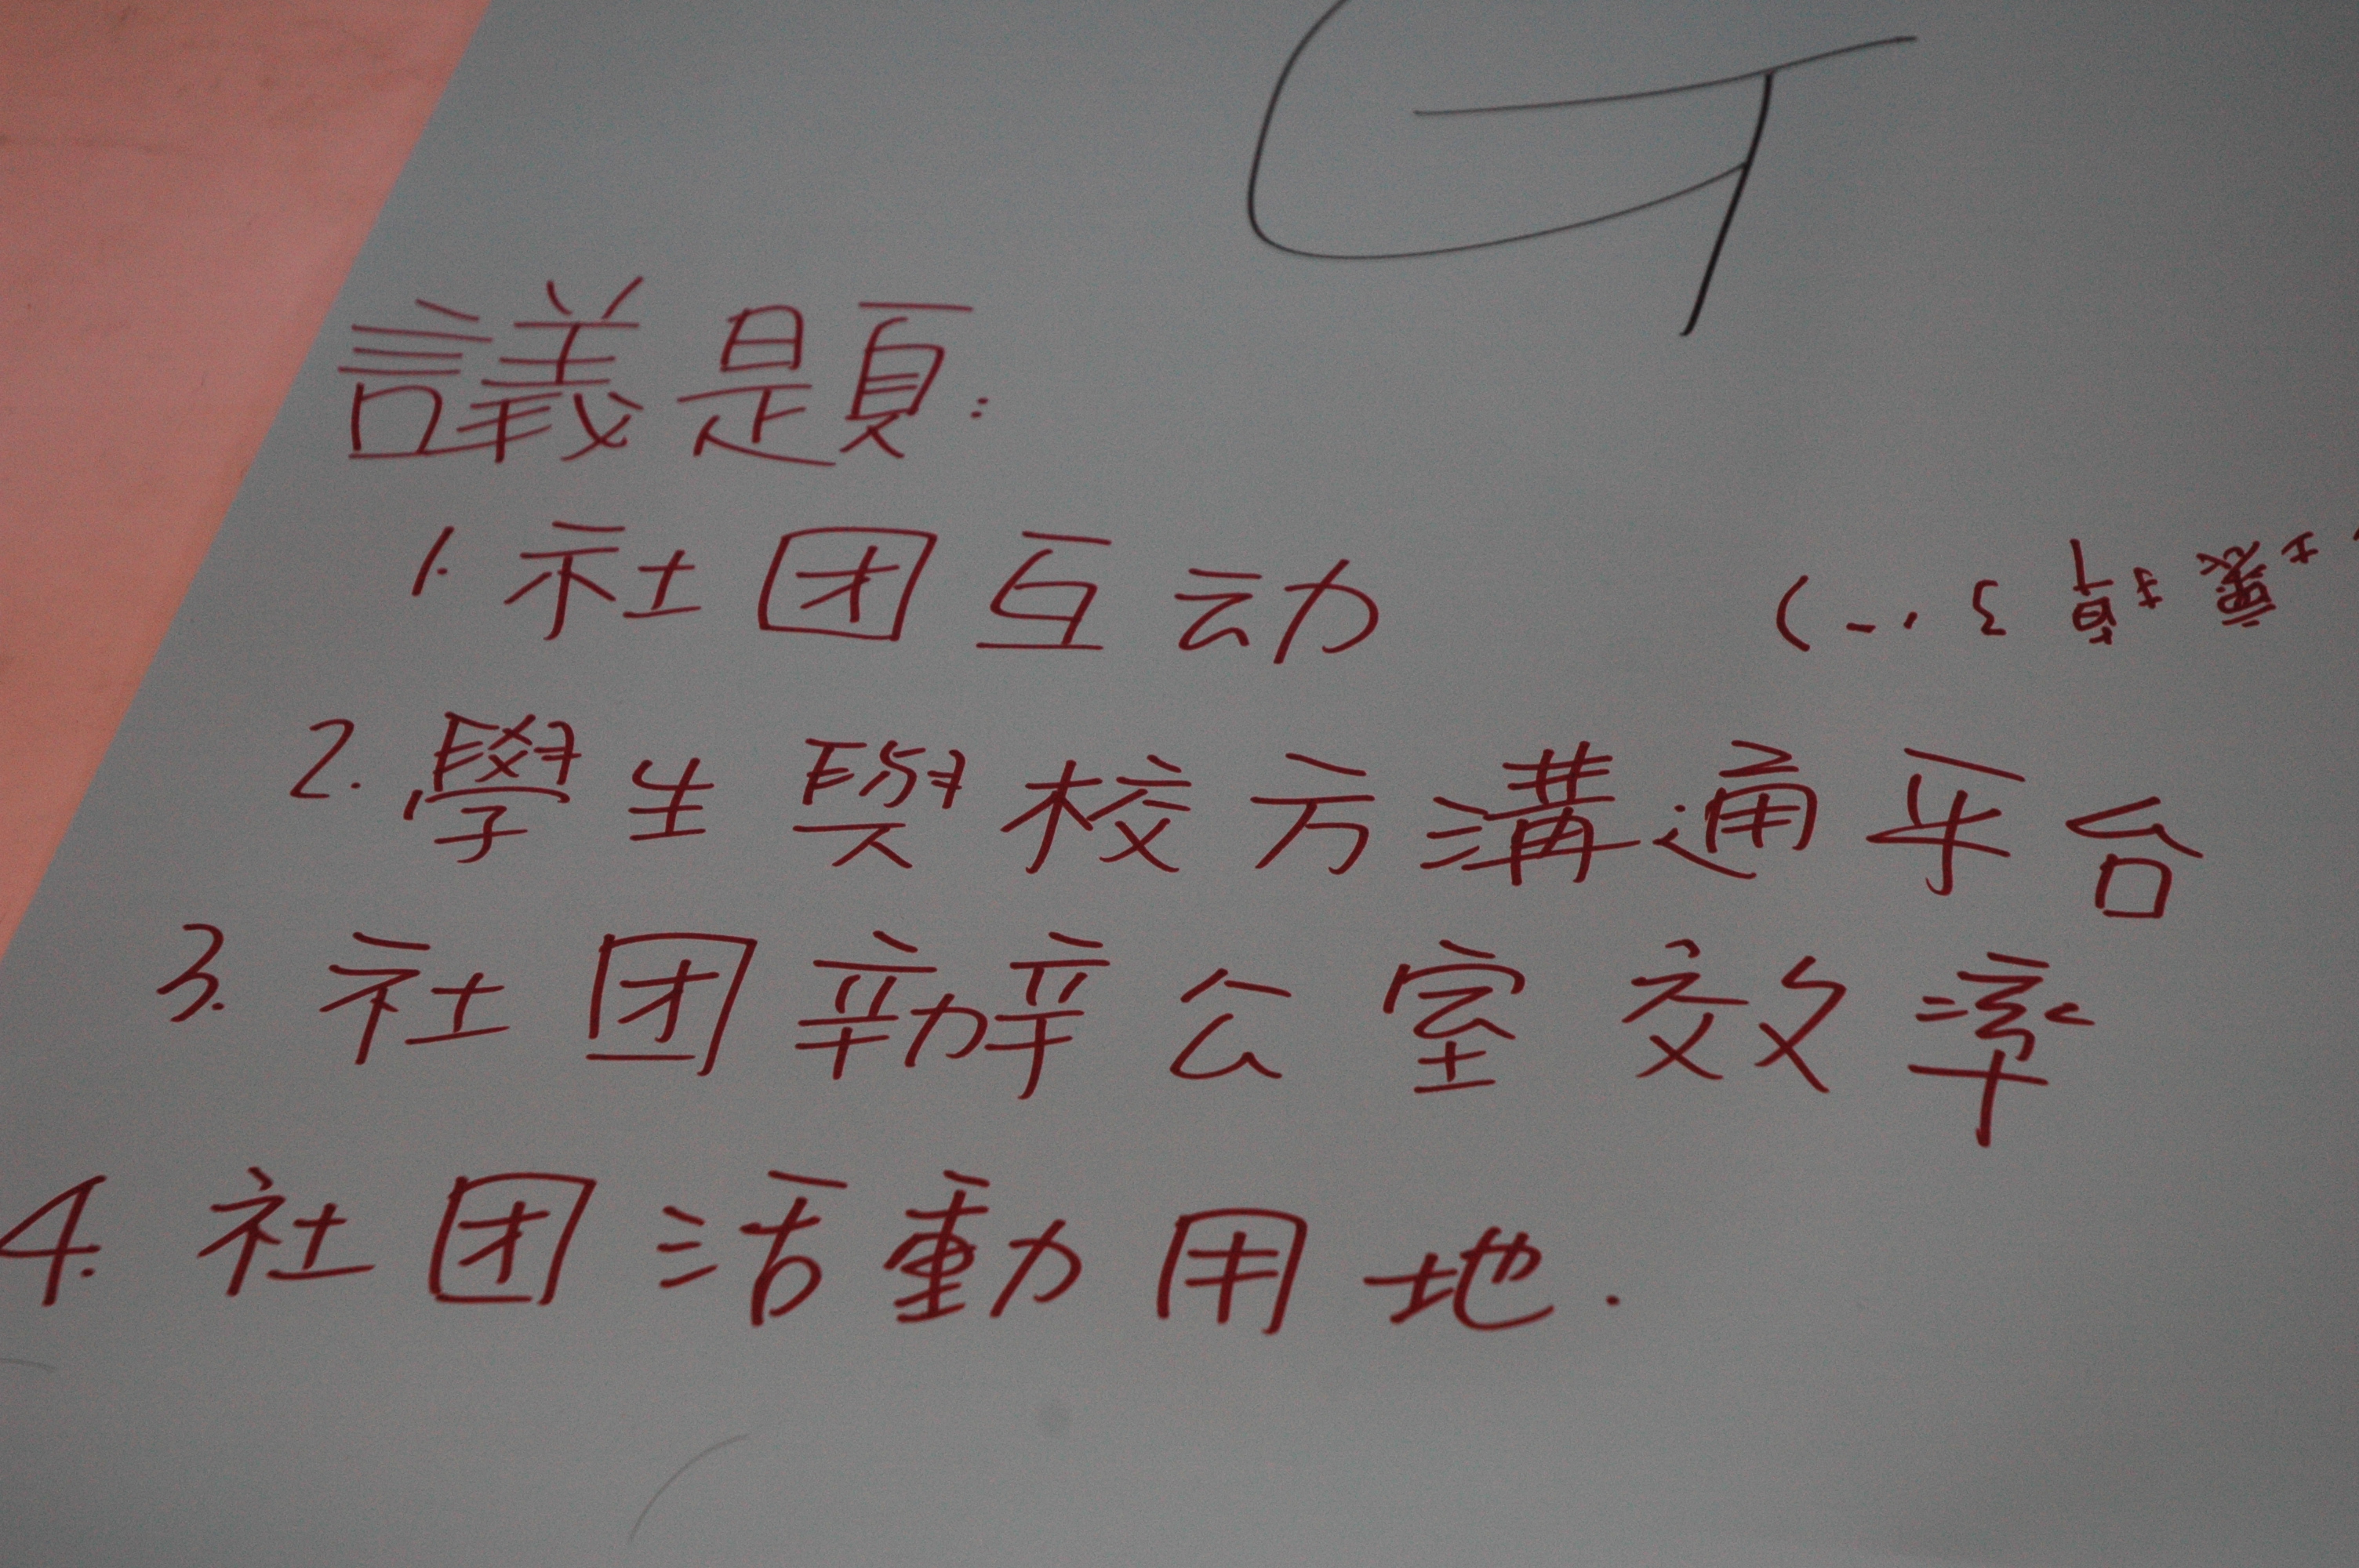 議題:
1. 社团互动
2. 學生與校方溝通平台
3. 社团辦公室效率
4. 社团活動用地.